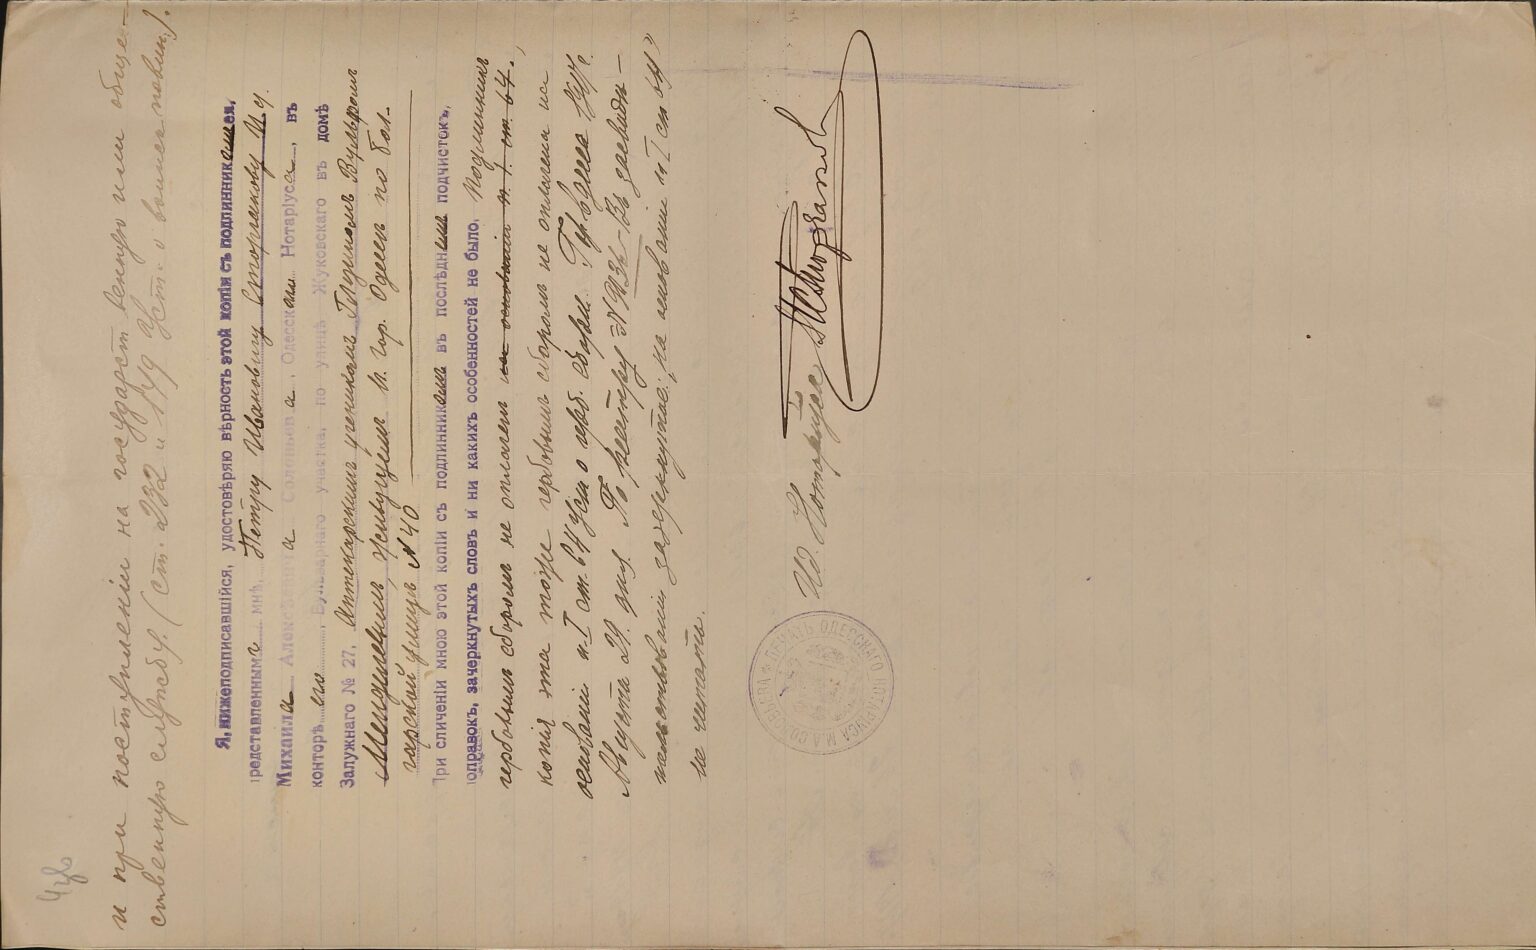 и при поступленіи на государственную или обще-
ственную службу. (Ст. 232 и 179 Уст. о воинск. повин.).
Я, нижеподписавшійся, удостовѣряю вѣрность этой копіи съ подлинникомъ ея,
представленнымъ мнѣ, Петру Ивановичу Сторжакову И. д.
Михаила Александровича Соловьева, Одесскаго Нотаріуса, въ
конторѣ его, Бульварнаго участка, по улицѣ Жуковскаго въ домѣ
Залужнаго № 27, Аптекарскимъ ученикомъ
живущимъ въ гор. Одессѣ по Бол-
гарской улицѣ № 40
При сличеніи мною этой копіи съ подлинникомъ въ послѣднемъ подчистокъ,
поправокъ, зачеркнутыхъ словъ и ни какихъ особенностей не было. Подлинникъ
гербовымъ сборомъ не оплаченъ на основаніи п. 1. ст. 64.,
копія эта тоже гербовымъ сборомъ не оплачена на
основаніи п. I ст. 64 Уст о герб. сборѣ. Гор Одесса
Августа 29 дня. По реестру № Въ засвидѣ-
тельствованіи зачеркнутое: „на основаніи п I ст 64“
не читать.
И. д. Нотаріуса
ПЕЧАТЬ ОДЕССКАГО НОТАРІУСА М.А. СОЛОВЬЕВА